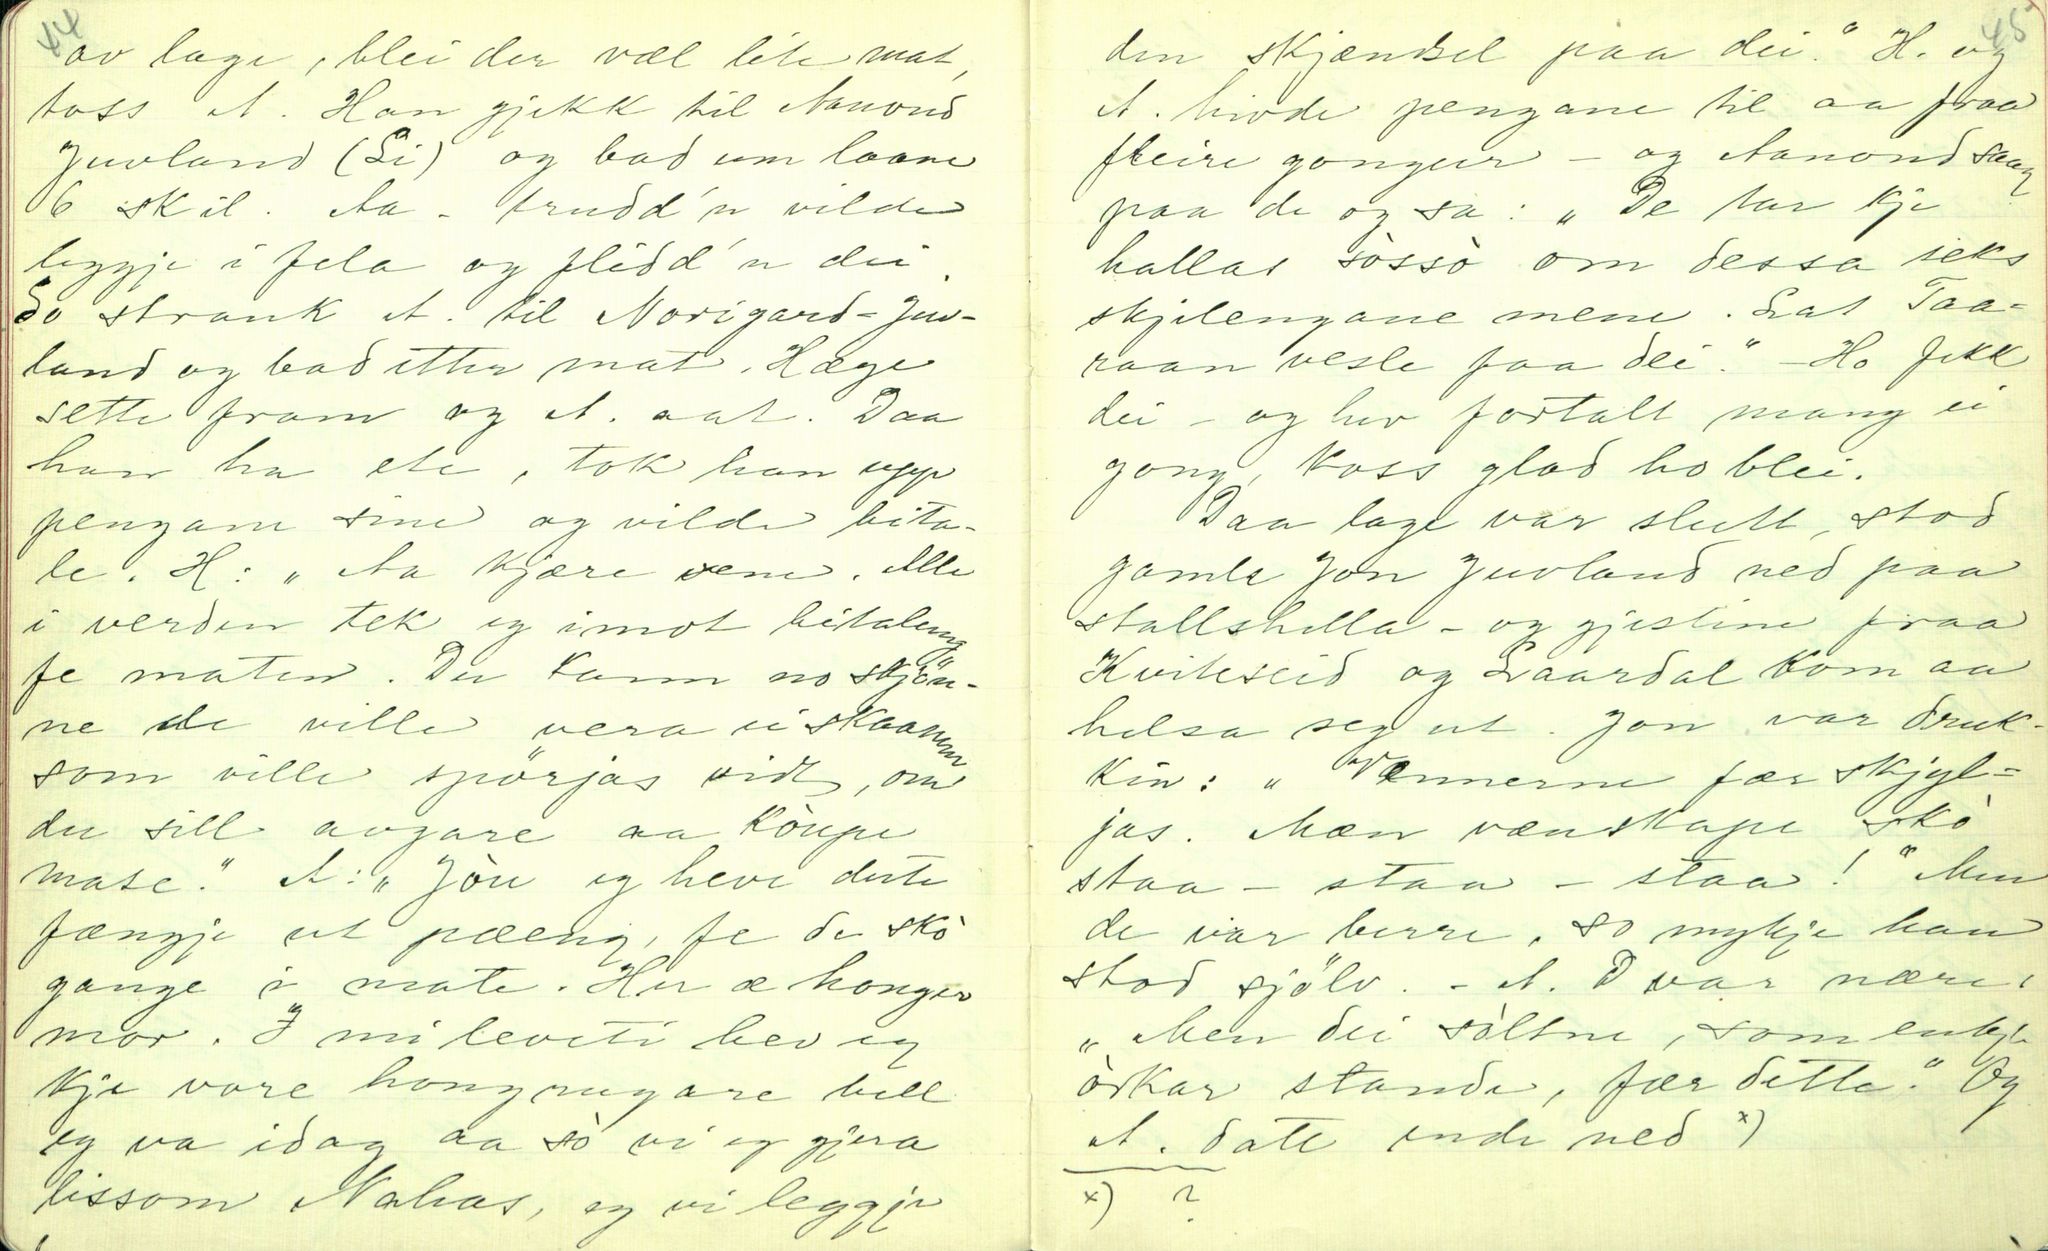 44
av lage, blei der væl lite mat,
toss A. Han gjekk til Aanond
Juvland (Li) og bad um laane
6 skil. Aa - trudd'n vilde
leggje i fela og flidd'n dei.
So strauk A. til Norigard-Juv-
land og bad etter mat. Hæge
sette fram og A. aat. Daa
han ha ete, tok han upp
pengane sine og vilde beta-
le. H: „Aa kjære vene. Alle
i verden tek eg imot betaleng
fe maten. Du kann no skjön-
ne de ville vera ei skaamm
som ville spörjas vidt, om
du sill avgare aa kòupe
mate." A: „Jòu eg heve dette
fængje ut pæeng, fe de skò
gange i mate. Her æ honger
mor. I mi leveti hev eg
kje vore hongrugare hell
eg va idag aa sò vi eg gjera
lissom Nahas, eg vi leggje
45
den skjændsel paa dei." H. og
A. hivde pengane til aa fraa
fleire gongur - og Aanond saag
paa de og sa: „De tar kje
hallas sòssò om dessa seks
skjelengane mene. Lat Taa-
raan vesle faa dei." - Ho fekk
dei - og hev fortalt mang ei
gong, koss glad ho blei.
Daa lage var slutt, stod
gamle Jon Juvland ned paa
stallshella - og gjestine fraa
Kviteseid og Laardal kom aa
helsa seg ut. Jon var druk-
kin: „Vennerne fær skjyl-
jas. Mæn vænskape skò
staa - staa - staa!" Men
de var berre, so mykje han
stod sjölv. - A. D var nære,
„Men dei sòltne, som inkje
òrkar stande, fær dette." Og
A. datt ende ned x)
x) ?